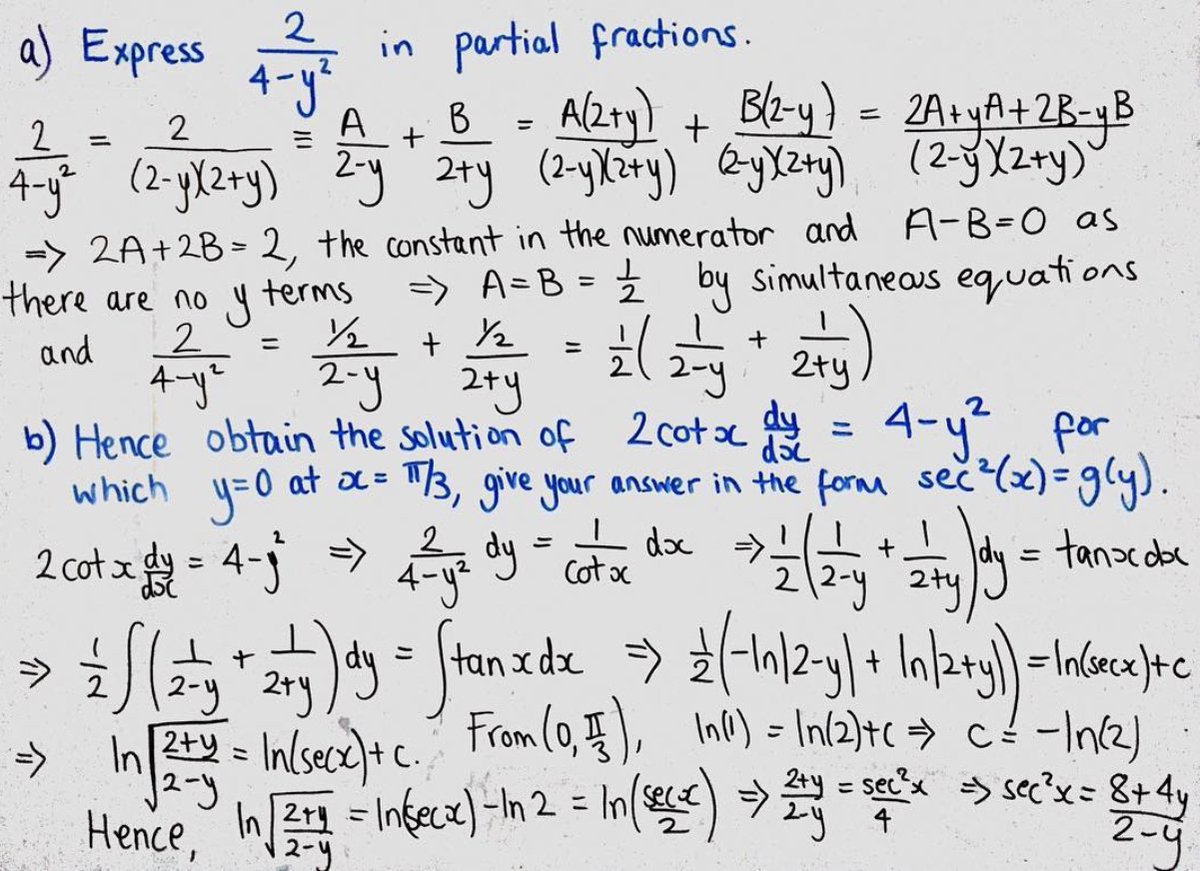 a) Express 2/(4-y²) in partial fractions.
2/(4-y²) = 2/((2-y)(2+y)) ≡ A/(2-y) + B/(2+y) = A(2+y)/((2-y)(2+y)) + B(2-y)/((2-y)(2+y)) = (2A+yA+2B-yB)/((2-y)(2+y))
=> 2A+2B=2, the constant in the numerator and A-B=0 as
there are no y terms => A=B=1/2 by simultaneous equations
and 2/(4-y²) = ½/(2-y) + ½/(2+y) = 1/2(1/(2-y) + 1/(2+y))
b) Hence obtain the solution of 2cotx dy/dx = 4-y² for
which y=0 at x=π/3, give your answer in the form sec²(x)=g(y).
2cotx dy/dx = 4-y² => 2/(4-y²) dy = 1/cotx dx => 1/2(1/(2-y) + 1/(2+y))dy = tanxdx
=> 1/2∫(1/(2-y) + 1/(2+y))dy = ∫tanxdx => 1/2(-ln|2-y| + ln|2+y|) = ln(secx)+c
=> ln√((2+y)/(2-y)) = ln(secx)+c. From (0, π/3), ln(1) = ln(2)+c => c = -ln(2)
Hence, ln√((2+y)/(2-y)) = ln(secx)-ln2 = ln(secx/2) => (2+y)/(2-y) = sec²x/4 => sec²x = (8+4y)/(2-y)